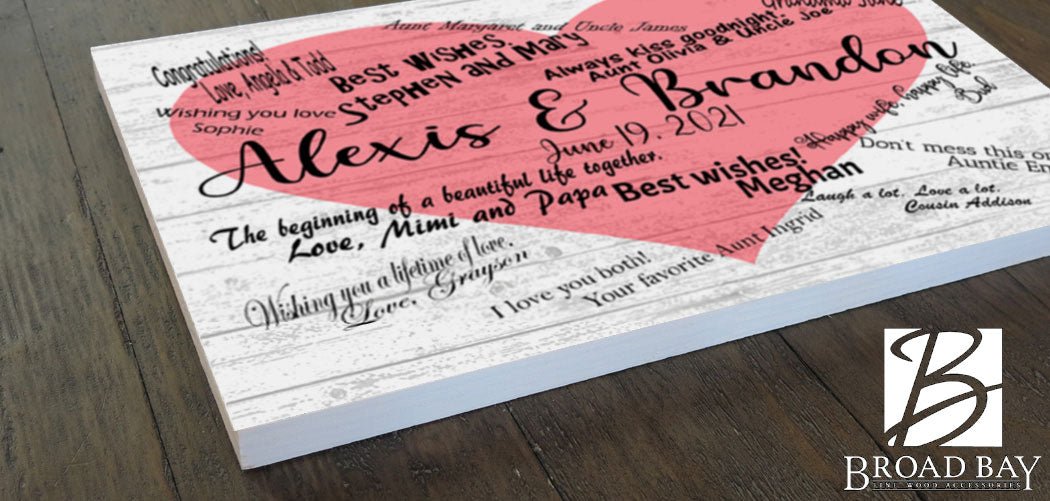 Aunt Margaret and Uncle James
Grandma June
Congratulations!
Love, Angela & Todd
Best Wishes,
Stephen and Mary
Always kiss goodnight.
Aunt Olivia & Uncle Joe
Wishing you love
Sophie
Alexis & Brandon
June 19, 2021
Happy wife, happy life.
Dad
The beginning of a beautiful life together.
Love, Mimi and Papa
Best wishes!
Meghan
Don't mess this
Auntie
Laugh a lot. Love a lot.
Cousin Addison
Wishing you a lifetime of love.
Love, Grayson
I love you both!
Your favorite Aunt Ingrid
B
BROAD BAY
FINE WOOD ACCESSORIES